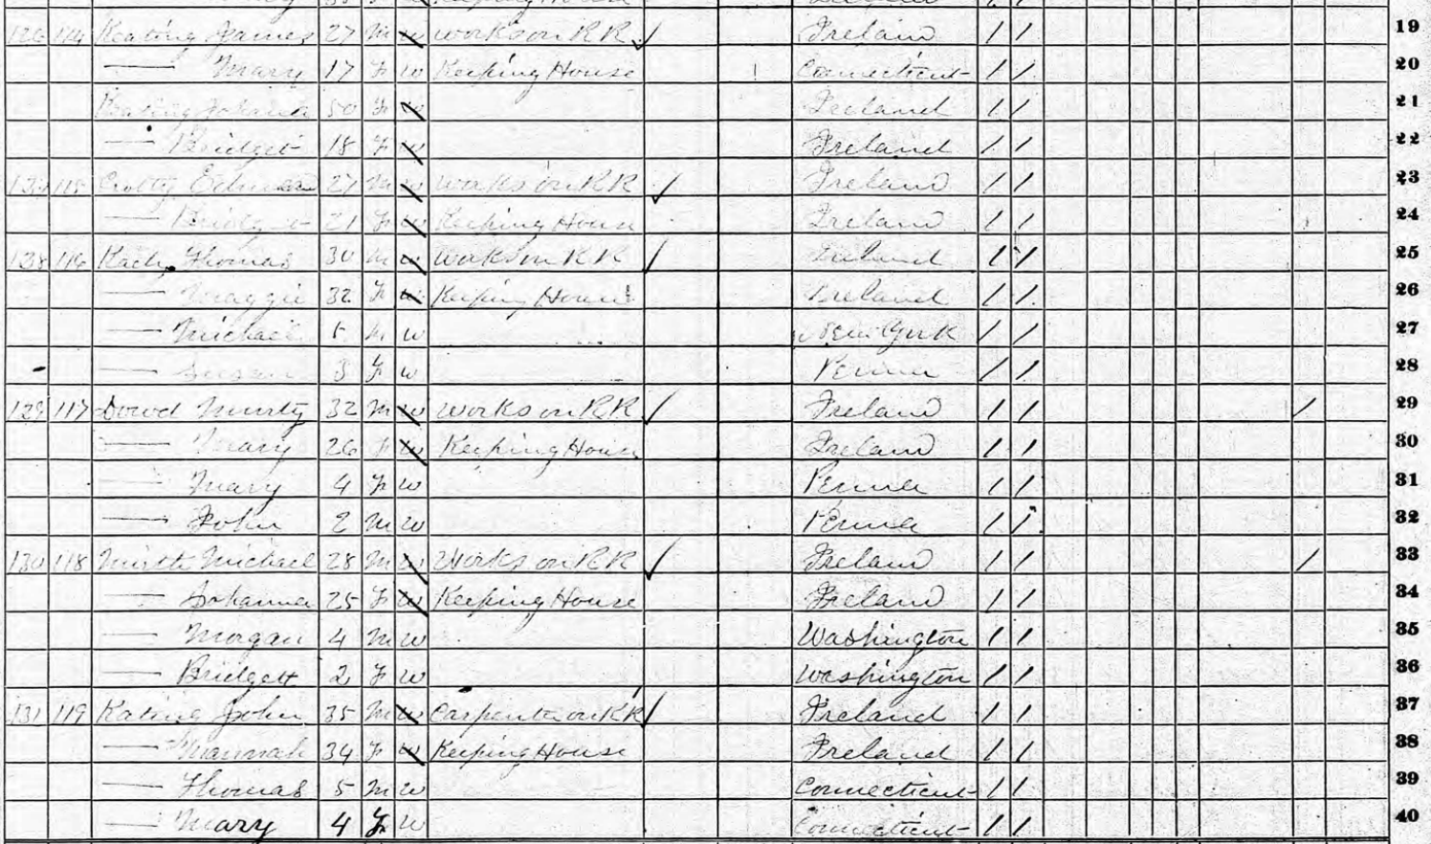 Keeping House
126 114 Keating James 27 M w works on RR Ireland 1 1 19
— Mary 17 F w Keeping House Connecticut 1 1 20
Keating Johanna 50 F w Ireland 1 1 21
— Bridget 18 F w Ireland 1 1 22
115 Crotty 27 M w works on RR Ireland 1 1 23
— Bridget 21 F w Keeping House Ireland 1 1 24
128 116 Thomas 30 M w Works on RR Ireland 1 1 25
— Maggie 32 F w Keeping House Ireland 1 1 26
— Michael 5 M w New York 1 1 27
— 3 F w Penna 1 1 28
129 117 Dowd Murty 32 M w works on RR Ireland 1 1 / 29
— Mary 26 F w Keeping House Ireland 1 1 30
— Mary 4 F w Penna 1 1 31
— John 2 M w Penna 1 1 32
130 118 Michael 28 M w Works on RR Ireland 1 1 / 33
— Johanna 25 F w Keeping House Ireland 1 1 34
— Morgan 4 M w Washington 1 1 35
— Bridgett 2 F w Washington 1 1 36
131 119 Kating John 35 M w Carpenter on RR Ireland 1 1 37
— Hannah 34 F w Keeping House Ireland 1 1 38
— Thomas 5 M w Connecticut 1 1 39
— Mary 4 F w Connecticut 1 1 40